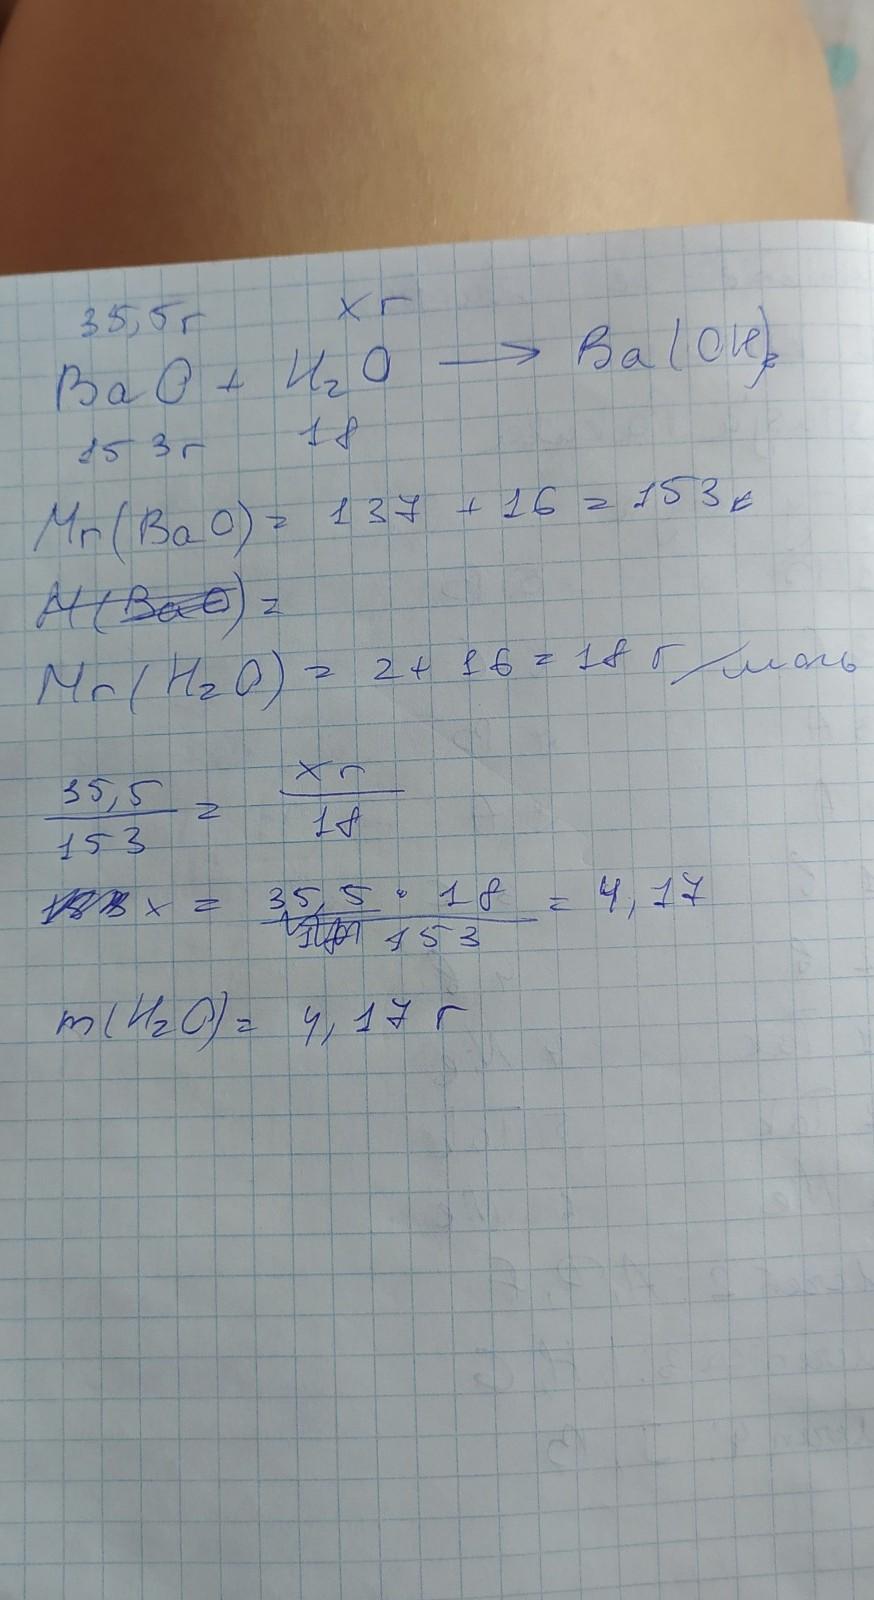 35,5г xг
BaO + H₂O → Ba(OH)₂
153г 18
Mr(BaO) = 137 + 16 = 153
M(BaO) =
Mr(H₂O) = 2 + 16 = 18 г/моль
35,5/153 = xг/18
x = 35,5 · 18 / 153 = 4,17
m(H₂O) = 4,17 г